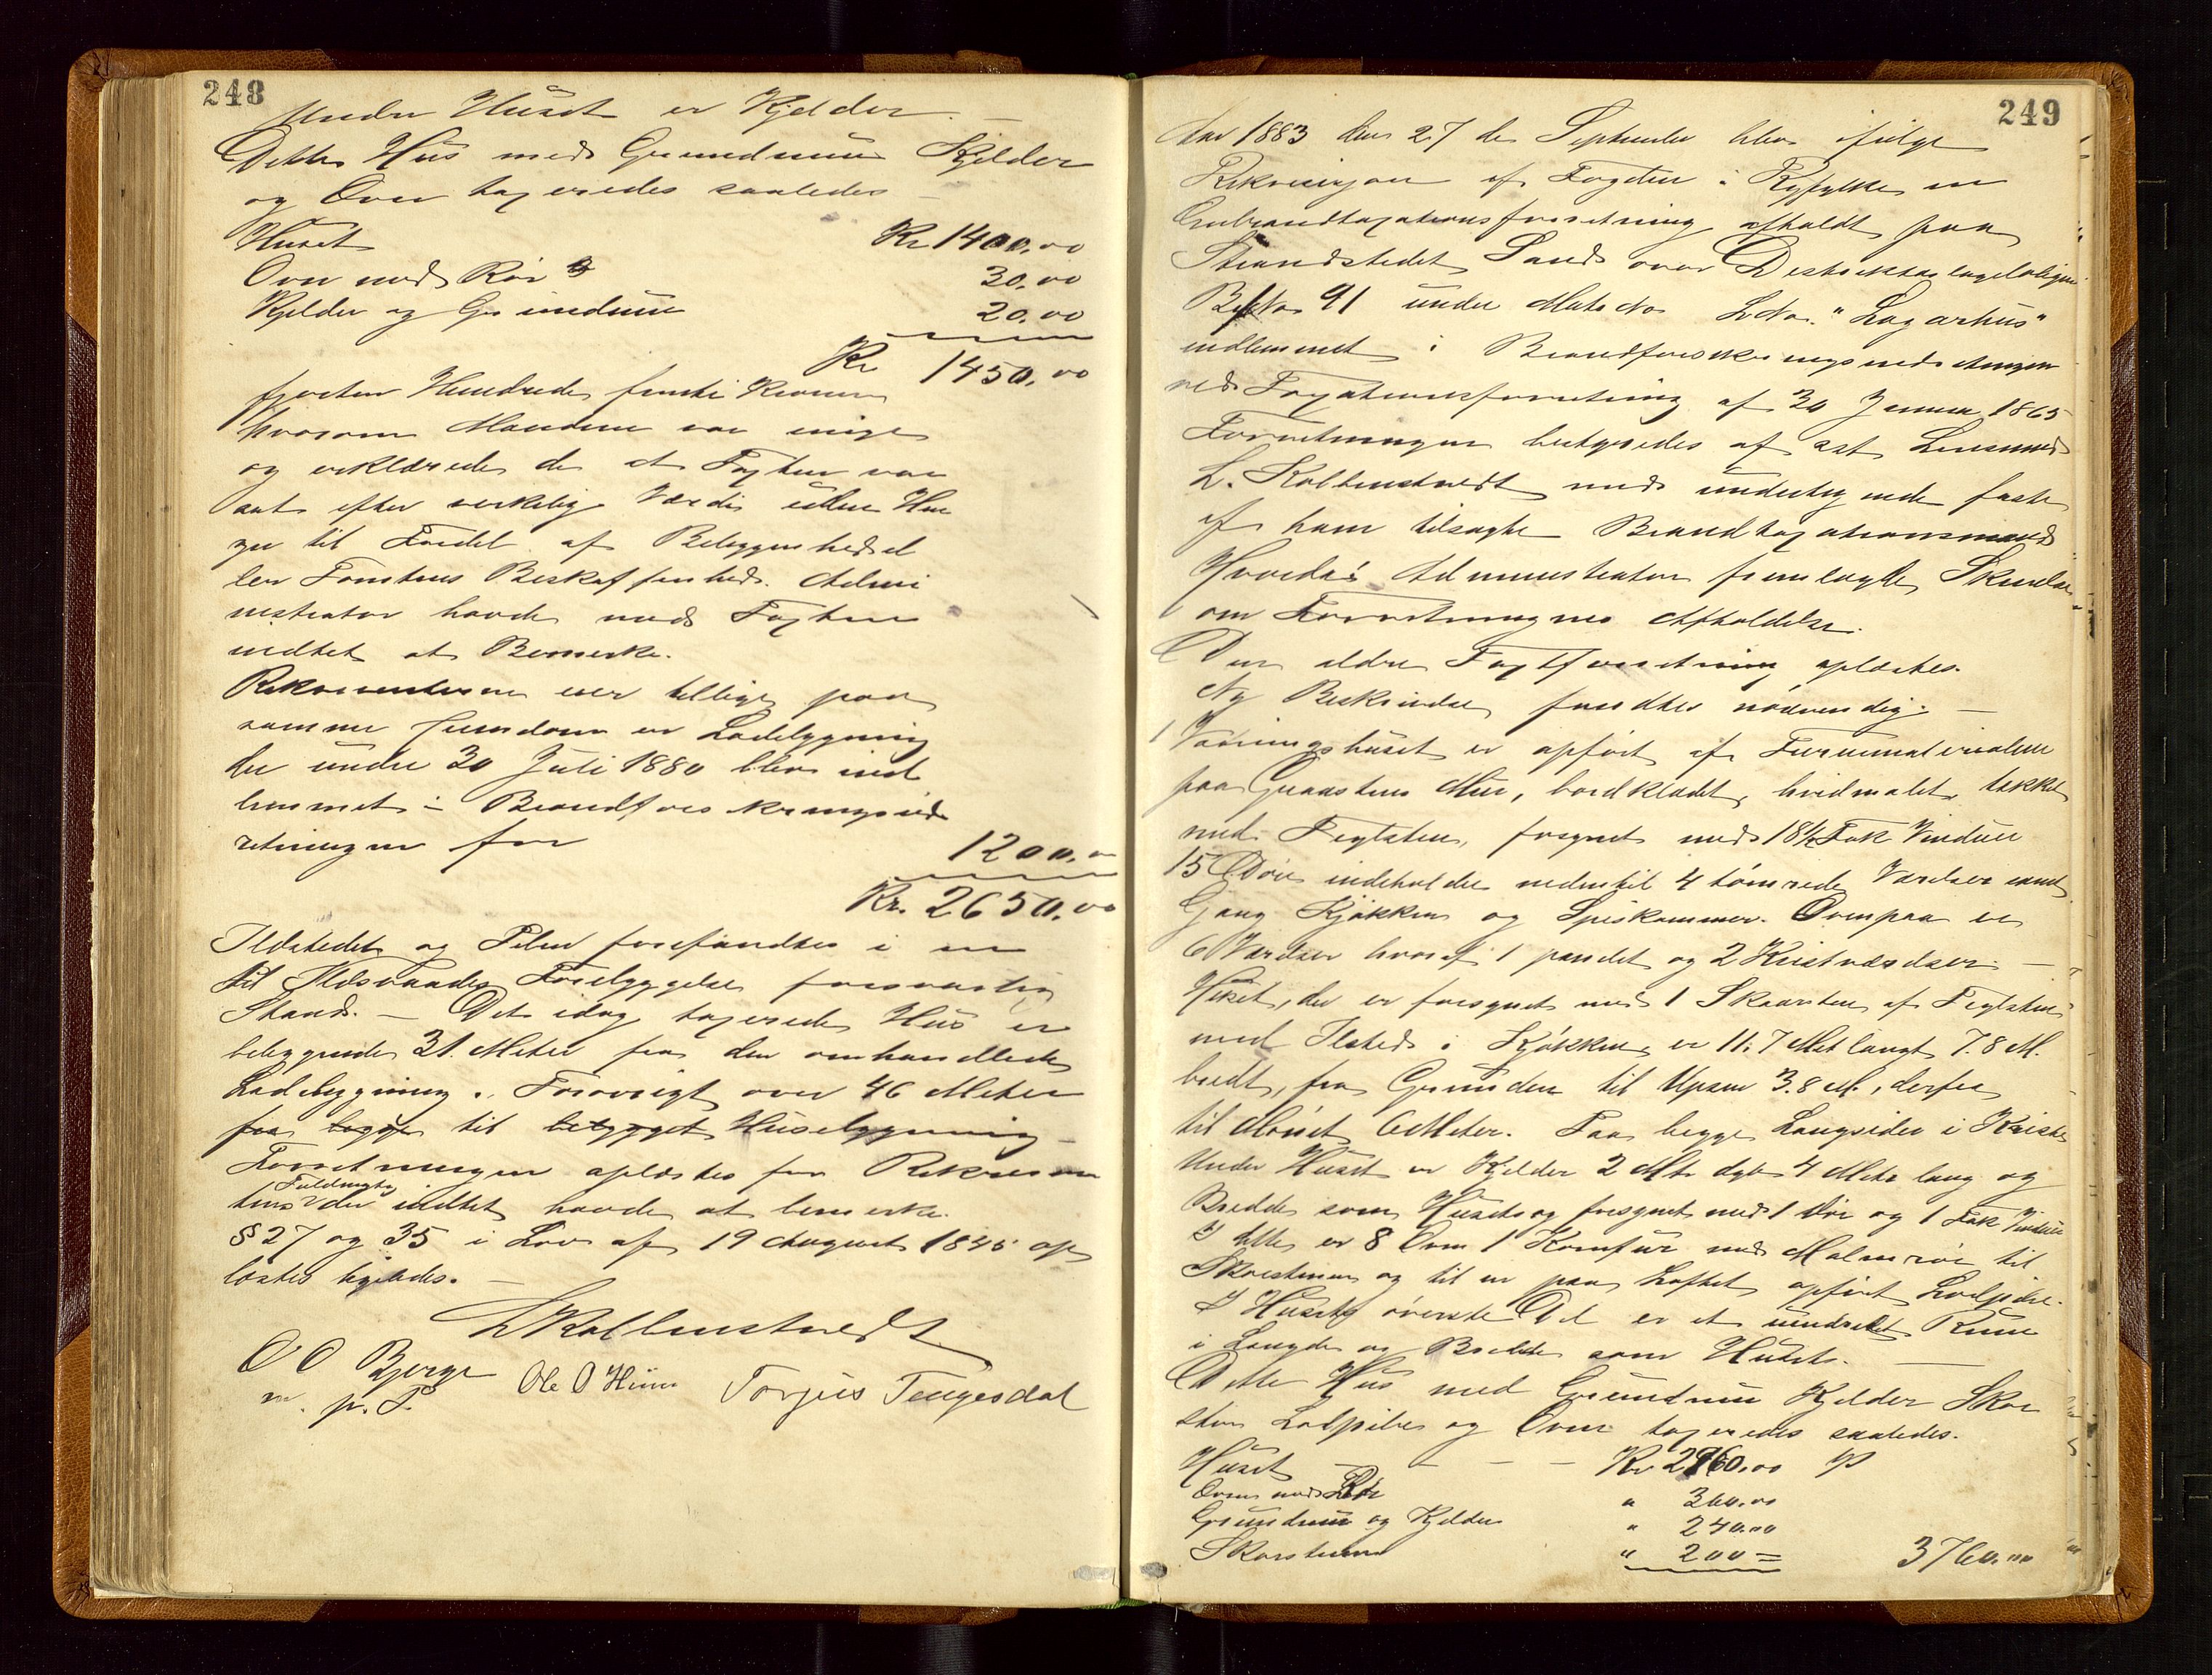 248
Under Huset er Kjelder. —
Dette Hus med Grundmur Kjelder
og Ovn taxeredes saaledes
Huset Kr 1400,00
Ovn med Rör 30,00
Kjelder og Grundmur 20,00
Kr 1450,00
fjorten Hundrede femti Kroner
hvorom Mændene var enige
og erklærede de at Taxten var
sat efter verkelig Værdi uden Hen
syn til Fordel af Beliggenhed el
ler Tomtens Beskaffenhed. Admi
nistrator havde mod Taxten
intet at Bemerke.
Rekvirenterne eier tillige paa
samme Eiendom en Ladebygning
der under 30 Juli 1880 blev ind
lemmet i Brandforsikringsind
retningen for 1200,00
Kr. 2650,00
Ildstedet og Piben forefandtes i en
til Ildsvaades Forebyggelse forsvarlig
Stand. — Det idag taxerede Hus er
beliggende 31. Meter fra den omhandlede
Ladebygning. Forøvrigt over 46 Meter
fra begge til bebygget Husebygning —
Forretningen oplæstes for Rekviren
tens Fuldmægtig der intet havde at bemerke.
§ 27 og 35 i Lov af 19 August 1845 op
læstes ligeledes. —
L Kolbenstvedt
O O Bjerge
m. p. P.
Ole O Hiim Torjus Tengesdal
249
Aar 1883 den 27 de September blev ifølge
Rekvisisjon af Fogden i Ryfylke en
Ombrandtaxationsforretning afholdt paa
Strandstedet Sand over
No 91 under Mats No LNo. "Lagarhus"
indlemmet i Brandforsikringsindretningen
ved Taxationsforretning af 30 Januar 1865
Forretningen bestyredes af Lensmand
L. Kolbenstvedt med undertegnede faste
af ham tilsagte Brandtaxationsmænd
Hvorda Administrator fremlagde Skrivelse
om Forretningens Afholdelse.
Den ældre Taxtforretning oplæstes.
Ny Beskrivelse fandtes nödvendig. —
1 Vaaningshuset er opført af Furuematerialier
paa Graastens Mur, bordklædt, hvidmalet, tækket
med Teglsten, forsynet med 18½ Fak Vinduer
15 Döre indeholder nedentil 4 tömrede Værelser samt
Gang Kjökken og Spiskammer. Ovenpaa er
6 Værelser hvoraf 1 panelet og 2 Kvistværelser. —
Huset, der er forsynet med 1 Skorsten af Teglsten
med Ilsted i Kjökken, er 11.7 Met langt 7.8 M.
bredt, fra Grunden til Upsen 3.8 M., derfra
til Mönet 6 Meter. Paa begge Langsider i Kviste
Under Huset er Kjelder 2 Mtr dyb 4 Meter lang og
Bredde som Husets og forsynet med 1 Dör og 1 Fak Vindue
I dette er 8 Ovne 1 Komfur med Malmrör til
Skorstenen og til en paa Loftet opfört Lodpibe.
I Husets överste Del er et uindredet Rum
i Længde og Bredde som Husets. —
Dette Hus med Grundmur Kjelder Skor
sten Lodpibe og Ovne taxeredes saaledes.
Huset — — — — Kr 2960,00
Ovne med Rör " 360,00
Grundmur og Kjelder " 240,00
Skorstenen " 200 = 3760,00